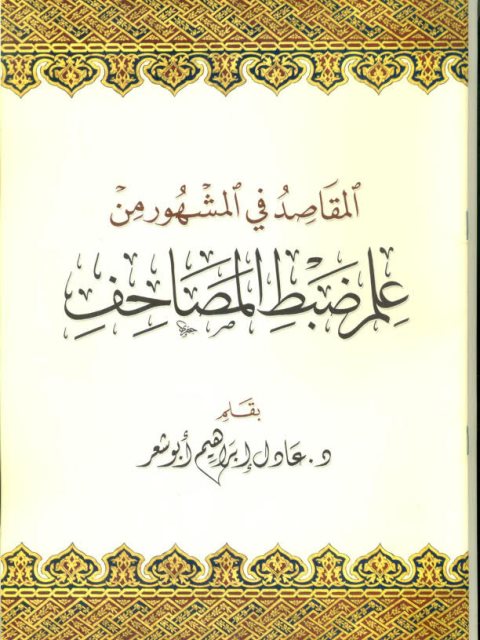 المقَاصِدُ في المشْهُور مِنْ
عِلمِ ضَبْطِ المَصَاحِفِ
بقَلَمِ
د. عَادل إبرَاهيم أبو شعر